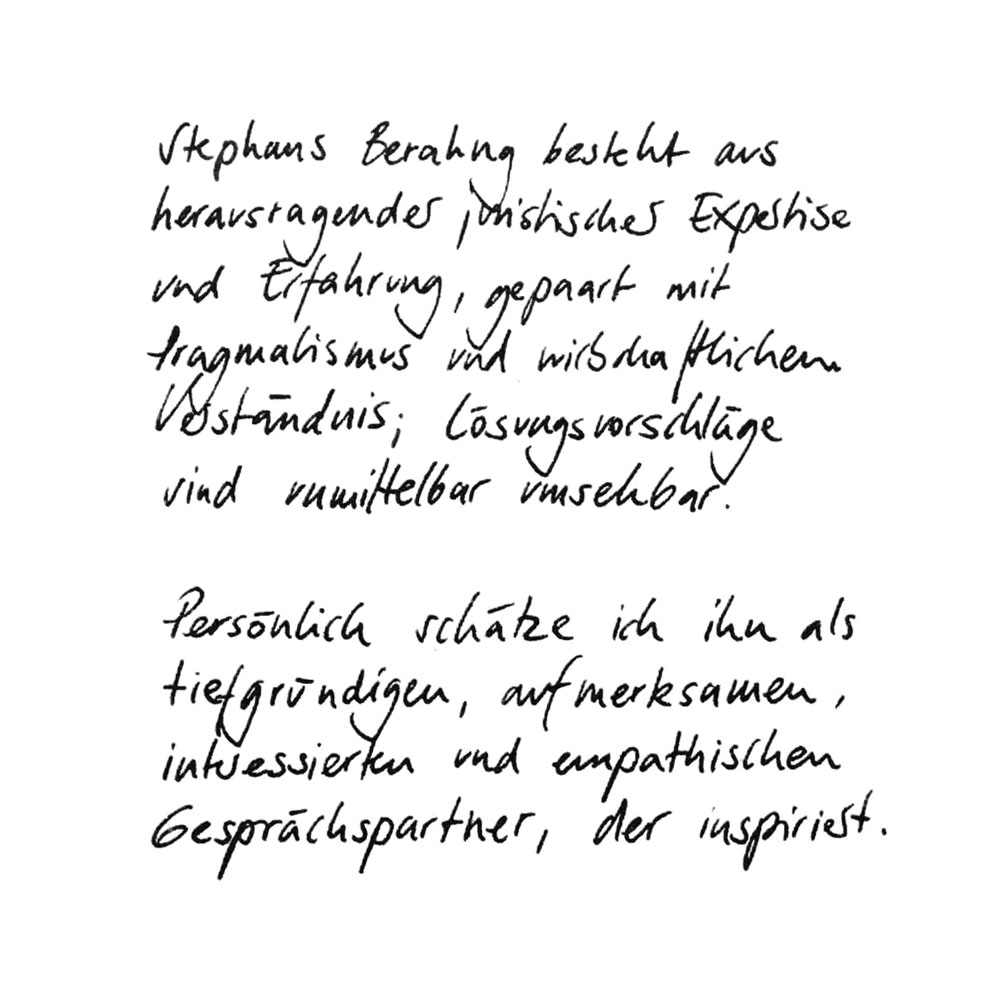 Stephans Beratung besteht aus
herausragender juristischer Expertise
und Erfahrung, gepaart mit
Pragmatismus und wirtschaftlichem
Verständnis; Lösungsvorschläge
sind unmittelbar umsetzbar.
Persönlich schätze ich ihn als
tiefgründigen, aufmerksamen,
interessierten und empathischen
Gesprächspartner, der inspiriert.